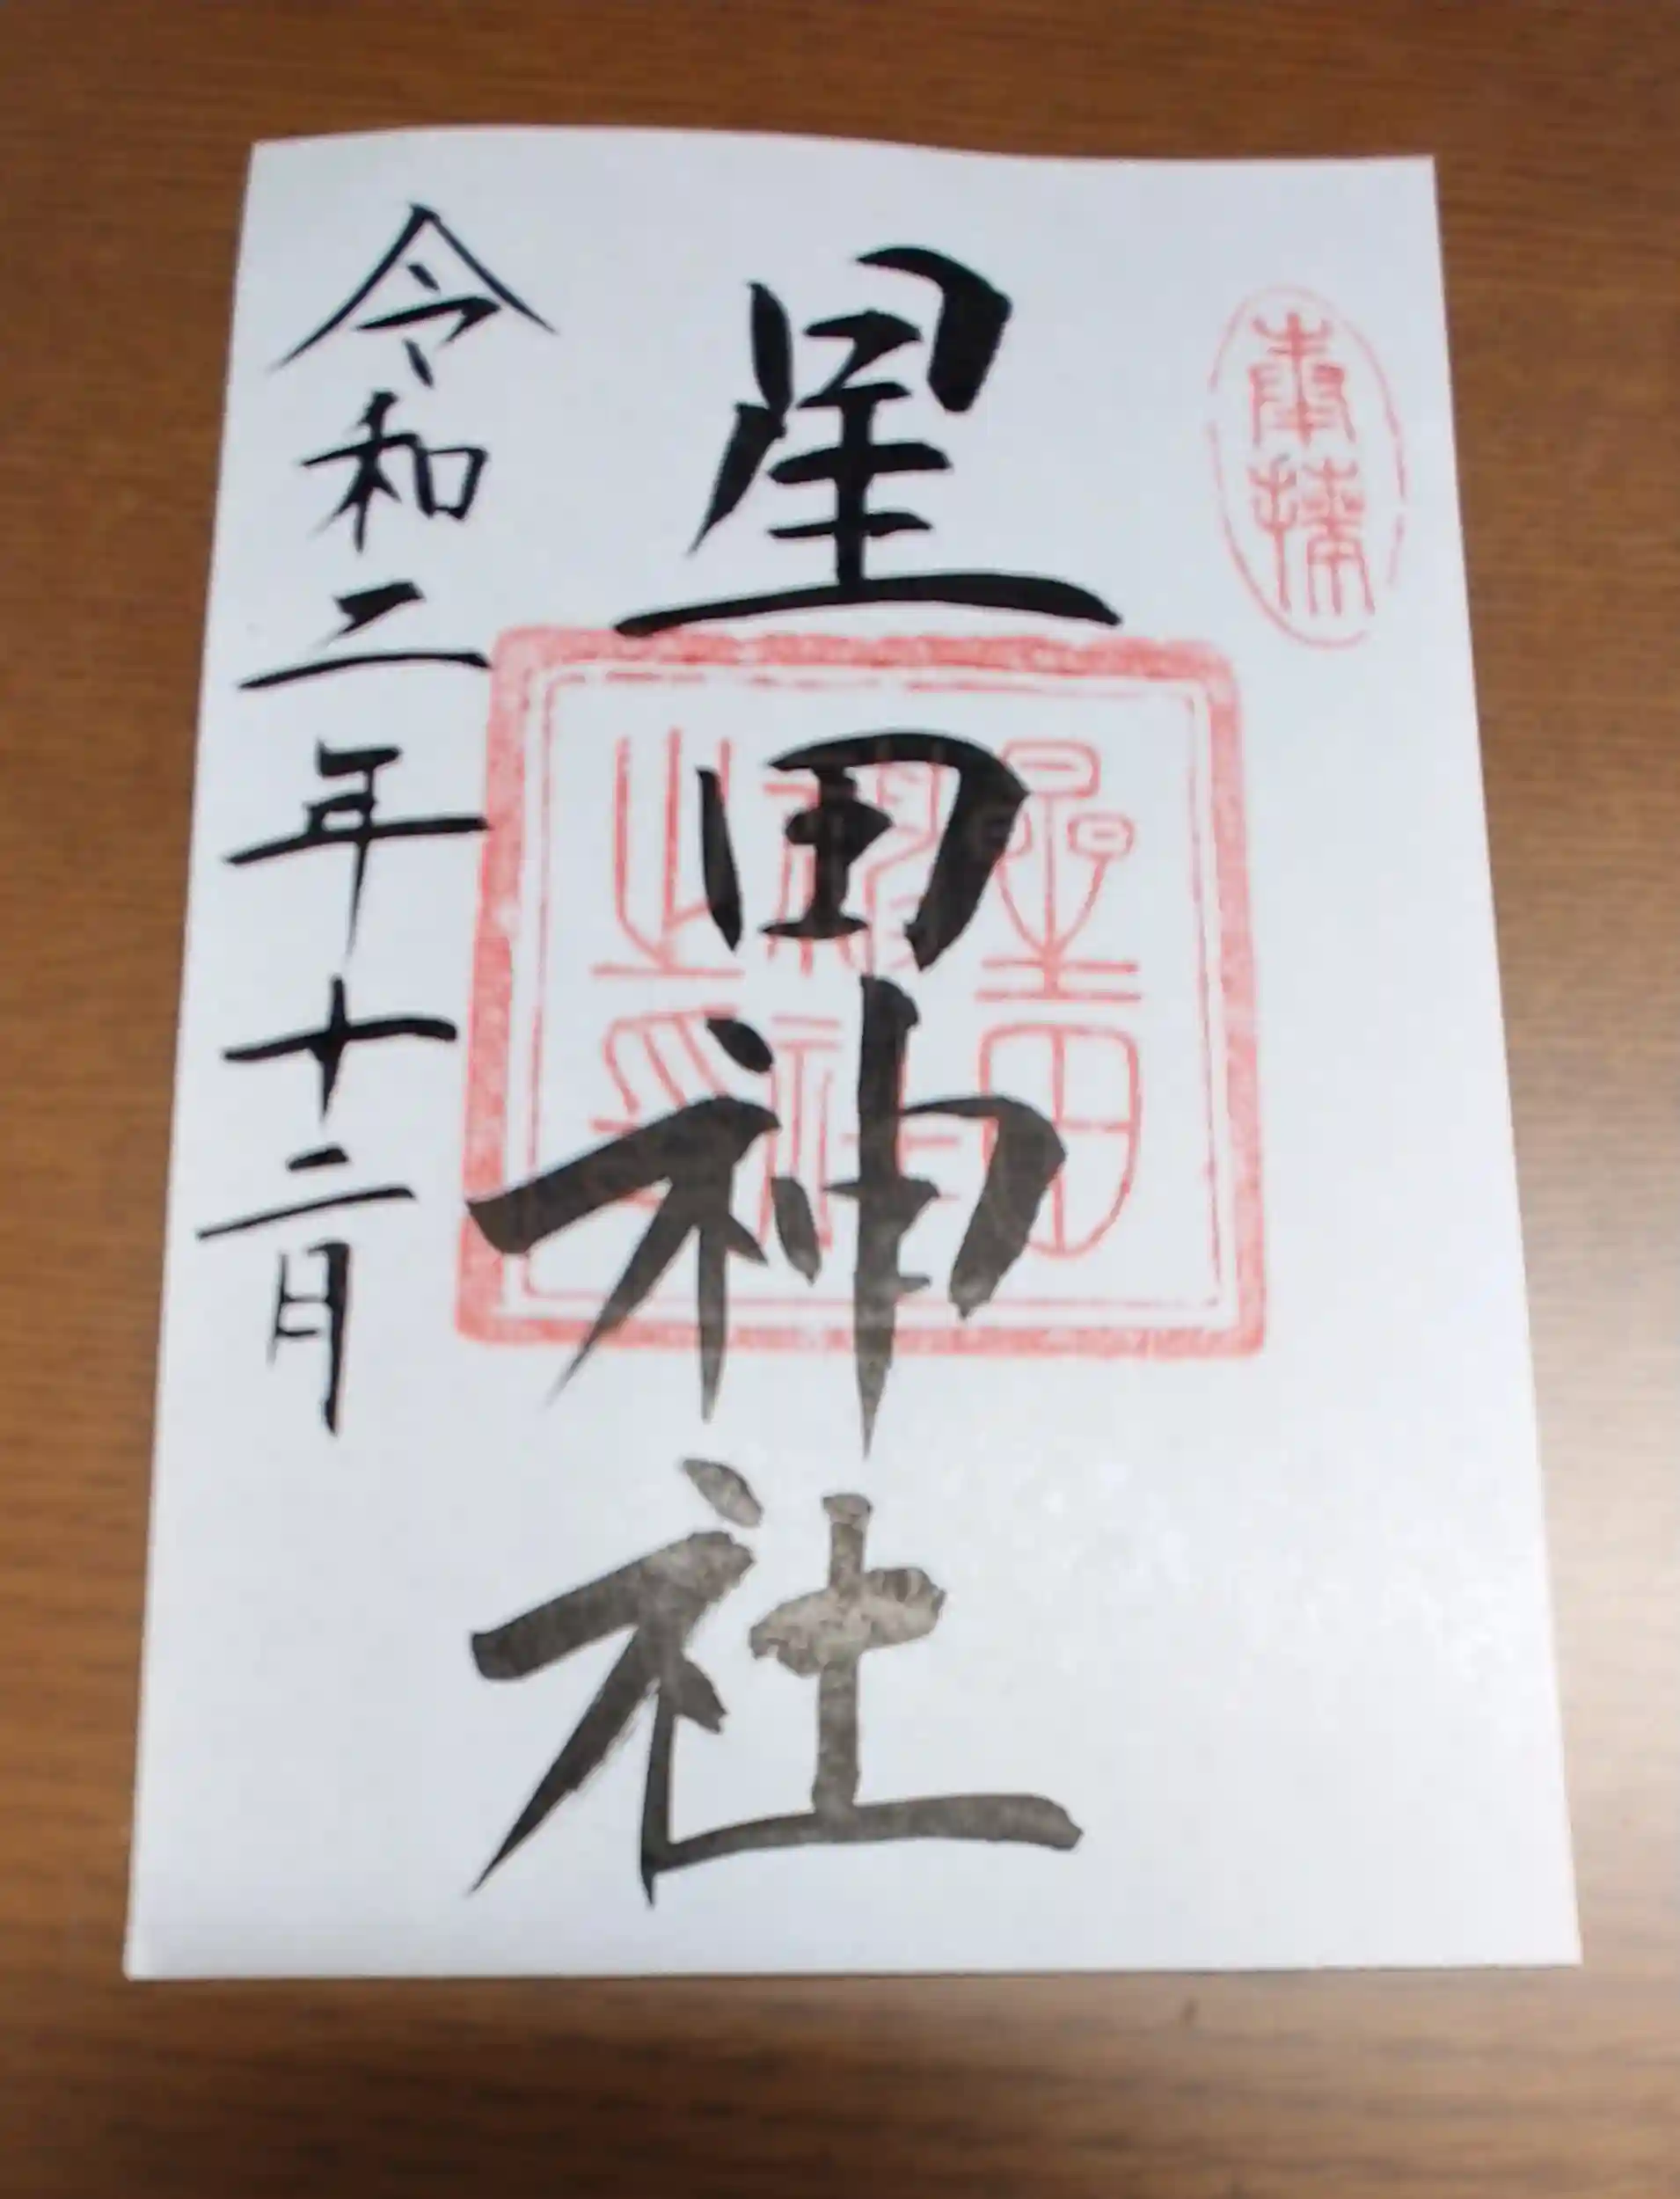 奉拝
星田神社
星田神社之印
令和二年十二月